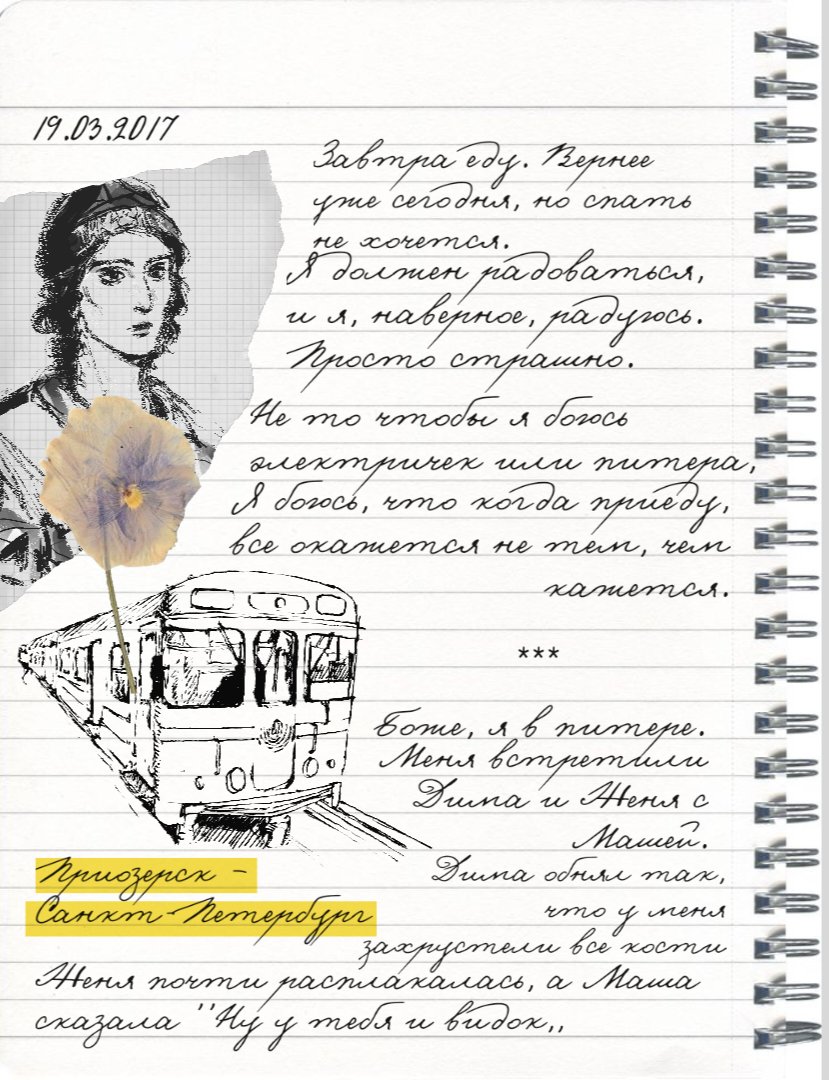 19.03.2017
Завтра еду. Вернее
уже сегодня, но спать
не хочется.
Я должен радоваться,
и я, наверное, радуюсь.
Просто страшно.
Не то чтобы я боюсь
электричек или питера,
Я боюсь, что когда приеду,
все окажется не тем, чем
кажется.
***
Боже, я в питере.
Меня встретили
Дима и Женя с
Машей.
Дима обнял так,
что у меня
захрустели все кости
Приозерск -
Санкт-Петербург
Женя почти расплакалась, а Маша
сказала ''Ну у тебя и видок,,